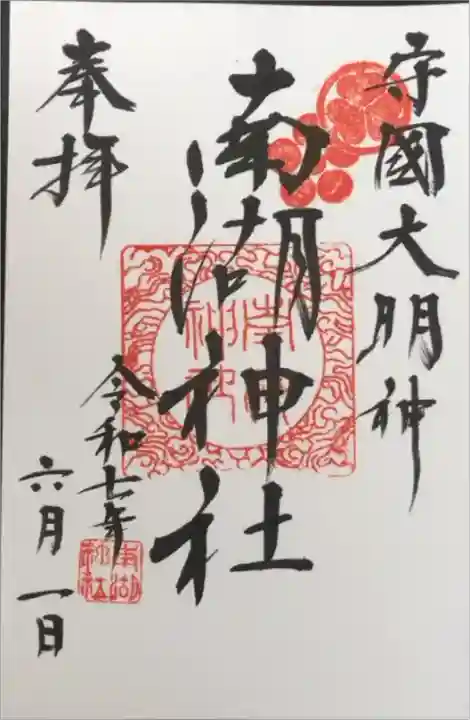 守國大明神
南湖神社
奉拝
令和七年
六月一日
南湖
神社
南湖
神社